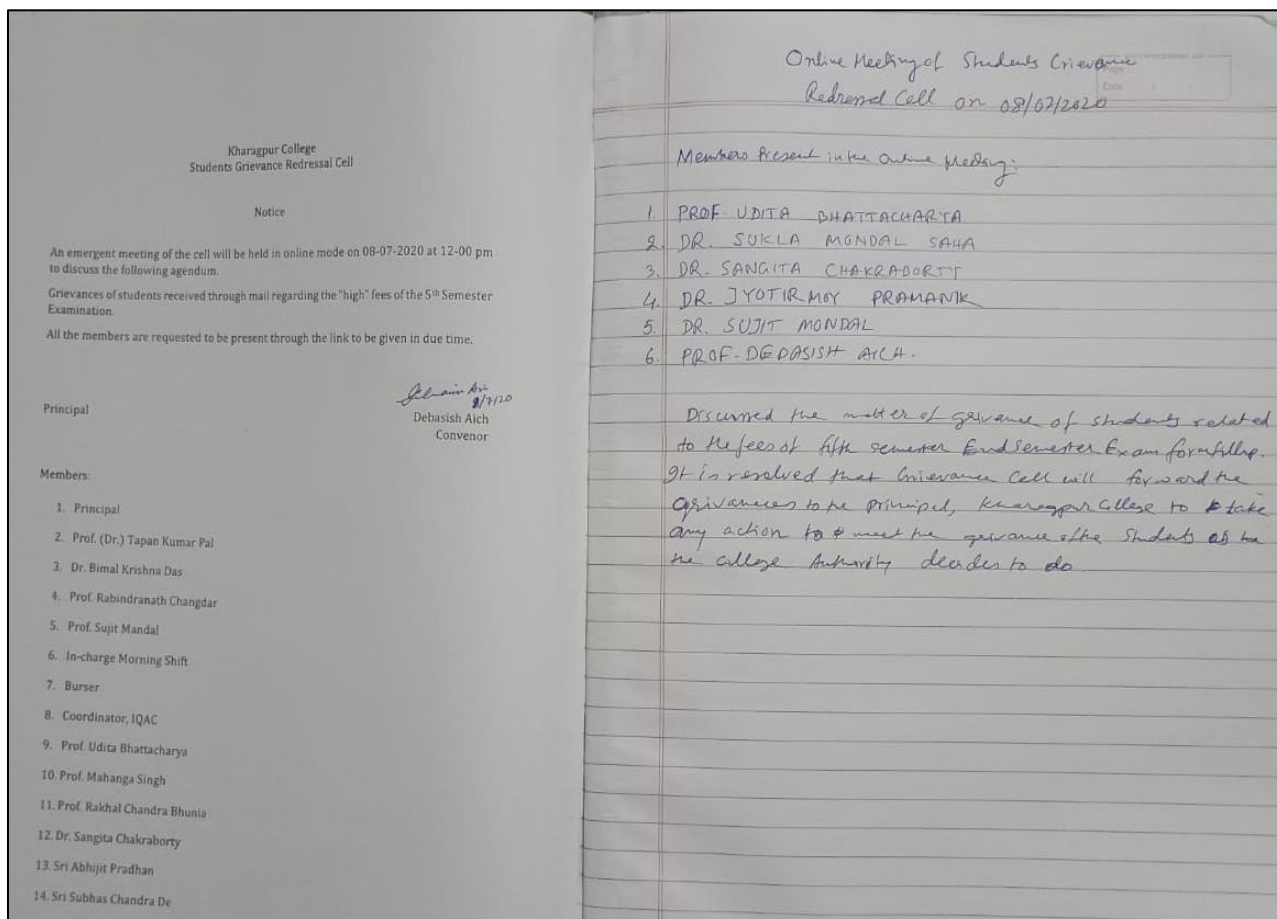 Kharagpur College
Students Grievance Redressal Cell
Notice
An emergent meeting of the cell will be held in online mode on 08-07-2020 at 12-00 pm
to discuss the following agendum.
Grievances of students received through mail regarding the "high" fees of the 5th Semester
Examination.
All the members are requested to be present through the link to be given in due time.
/7/20
Principal
Debasish Aich
Convenor
Members:
1. Principal
2. Prof. (Dr.) Tapan Kumar Pal
3. Dr. Bimal Krishna Das
4. Prof. Rabindranath Changdar
5. Prof. Sujit Mandal
6. In-charge Morning Shift
7. Burser
8. Coordinator, IQAC
9. Prof. Udita Bhattacharya
10. Prof. Mahanga Singh
11. Prof. Rakhal Chandra Bhunia
12. Dr. Sangita Chakraborty
13. Sri Abhijit Pradhan
14. Sri Subhas Chandra De
Online Meeting of Students Grievance
Redressal Cell on 08/07/2020
Date
Members Present in the Online Meeting:
1. PROF UDITA BHATTACHARYA
2. DR. SUKLA MONDAL SAHA
3. DR. SANGITA CHAKRABORTY
4. DR. JYOTIRMOY PRAMANIK
5. DR. SUJIT MONDAL
6. PROF-DEBASISH AICH.
Discussed the matter of grivance of students related
to the fees of fifth semester End Semester Exam formfillup.
It is resolved that Grievance Cell will forward the
grivances to the principal, Kharagpur College to take
any action to meet the grivance of the students as
the College Authority decides to do